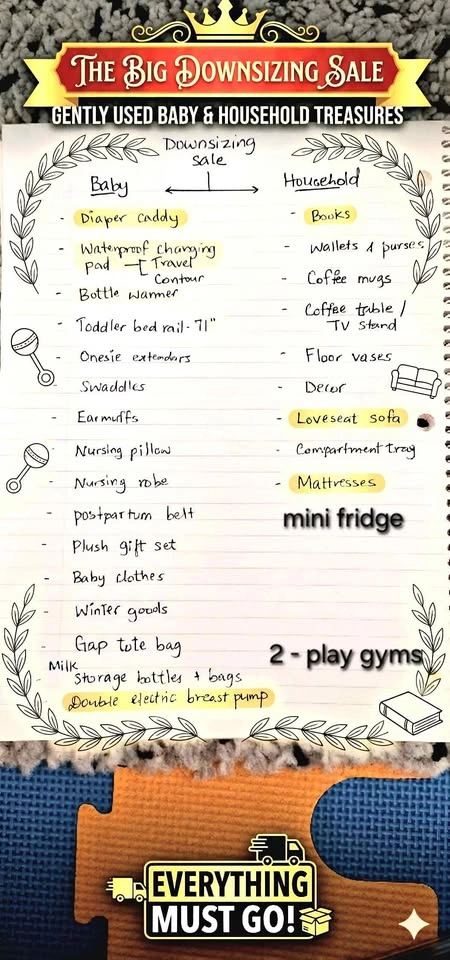 THE BIG DOWNSIZING SALE
GENTLY USED BABY & HOUSEHOLD TREASURES
Downsizing
sale
Baby
- Diaper caddy
- Waterproof changing
pad - Travel
Contour
- Bottle warmer
- Toddler bed rail - 71"
- Onesie extendors
- Swaddles
- Earmuffs
- Nursing pillow
- Nursing robe
- postpartum belt
- Plush gift set
- Baby clothes
- Winter goods
- Gap tote bag
Milk
- Storage bottles + bags
Double electric breast pump
Household
- Books
- Wallets & purses
- Coffee mugs
- Coffee table /
TV stand
- Floor vases
- Decor
- Loveseat sofa
- Compartment tray
- Mattresses
mini fridge
2 - play gyms
EVERYTHING
MUST GO!